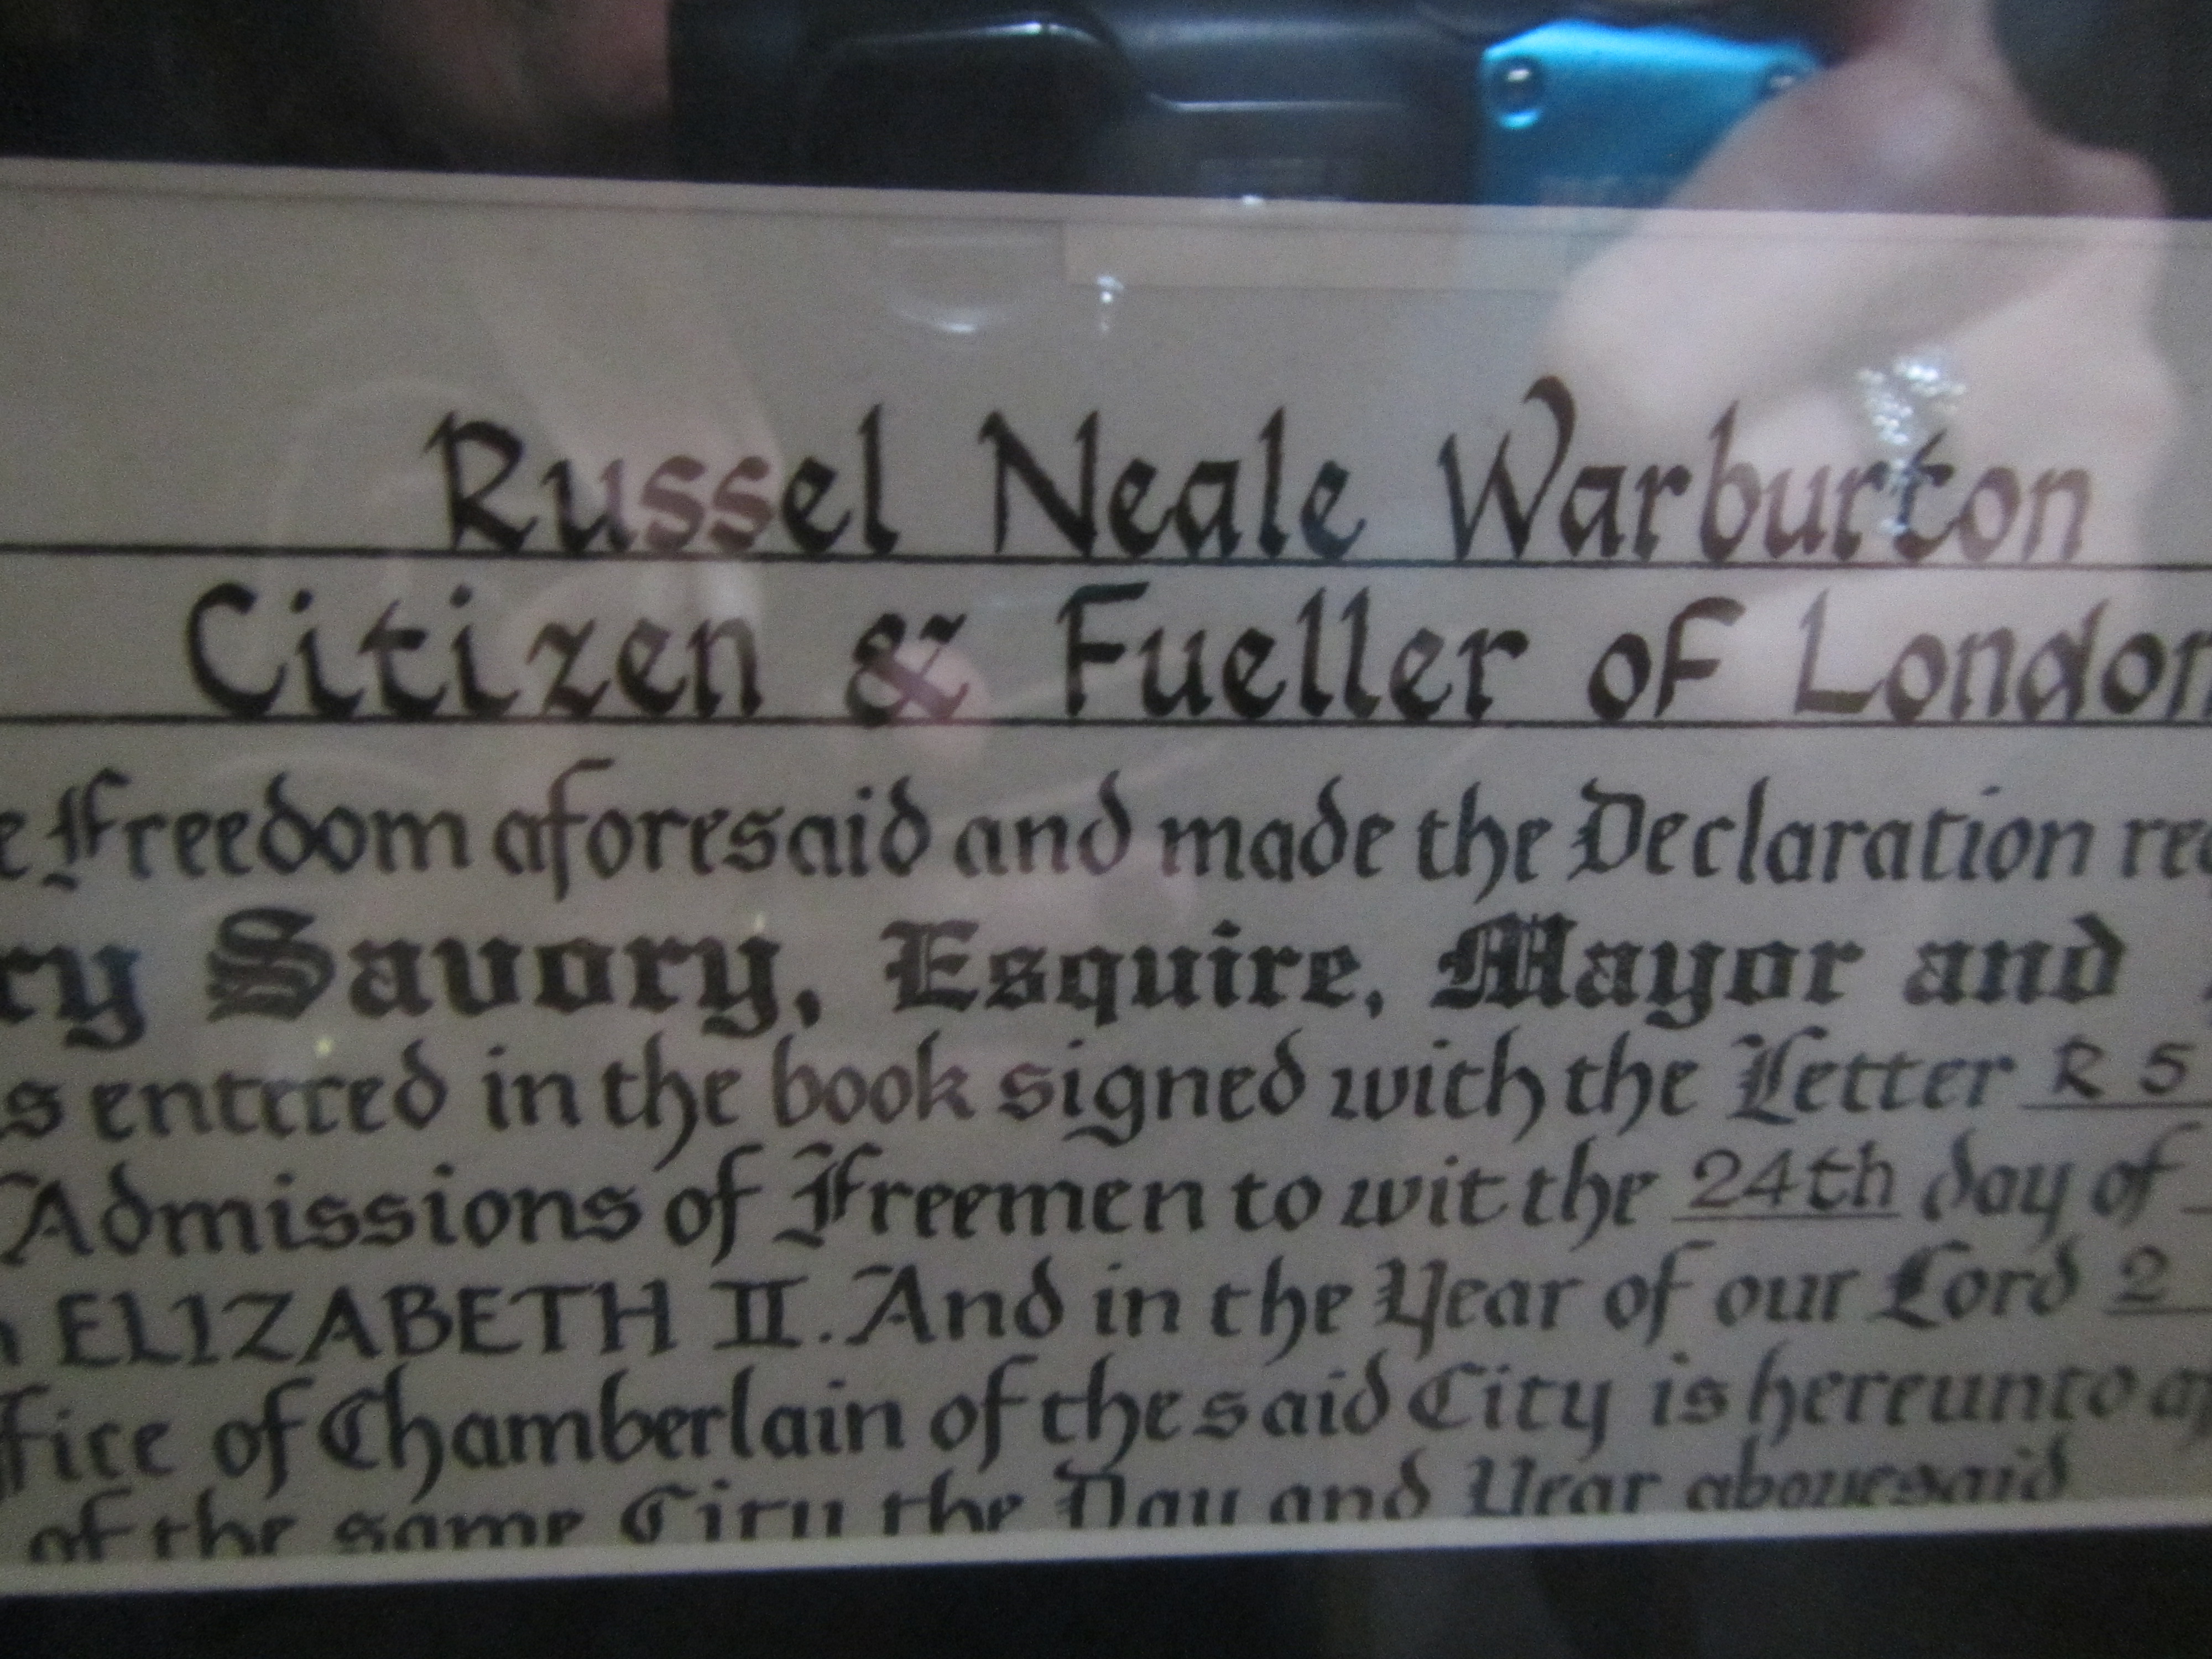 Russel Neale Warburton
Citizen & Fueller of London
e Freedom aforesaid and made the Declaration re
ry Savory, Esquire, Mayor and
s entered in the book signed with the Letter R 5
Admissions of Freemen to wit the 24th day of
ELIZABETH II. And in the Year of our Lord 2
ffice of Chamberlain of the said City is hereunto a
of the same City the Day and Year abovesaid